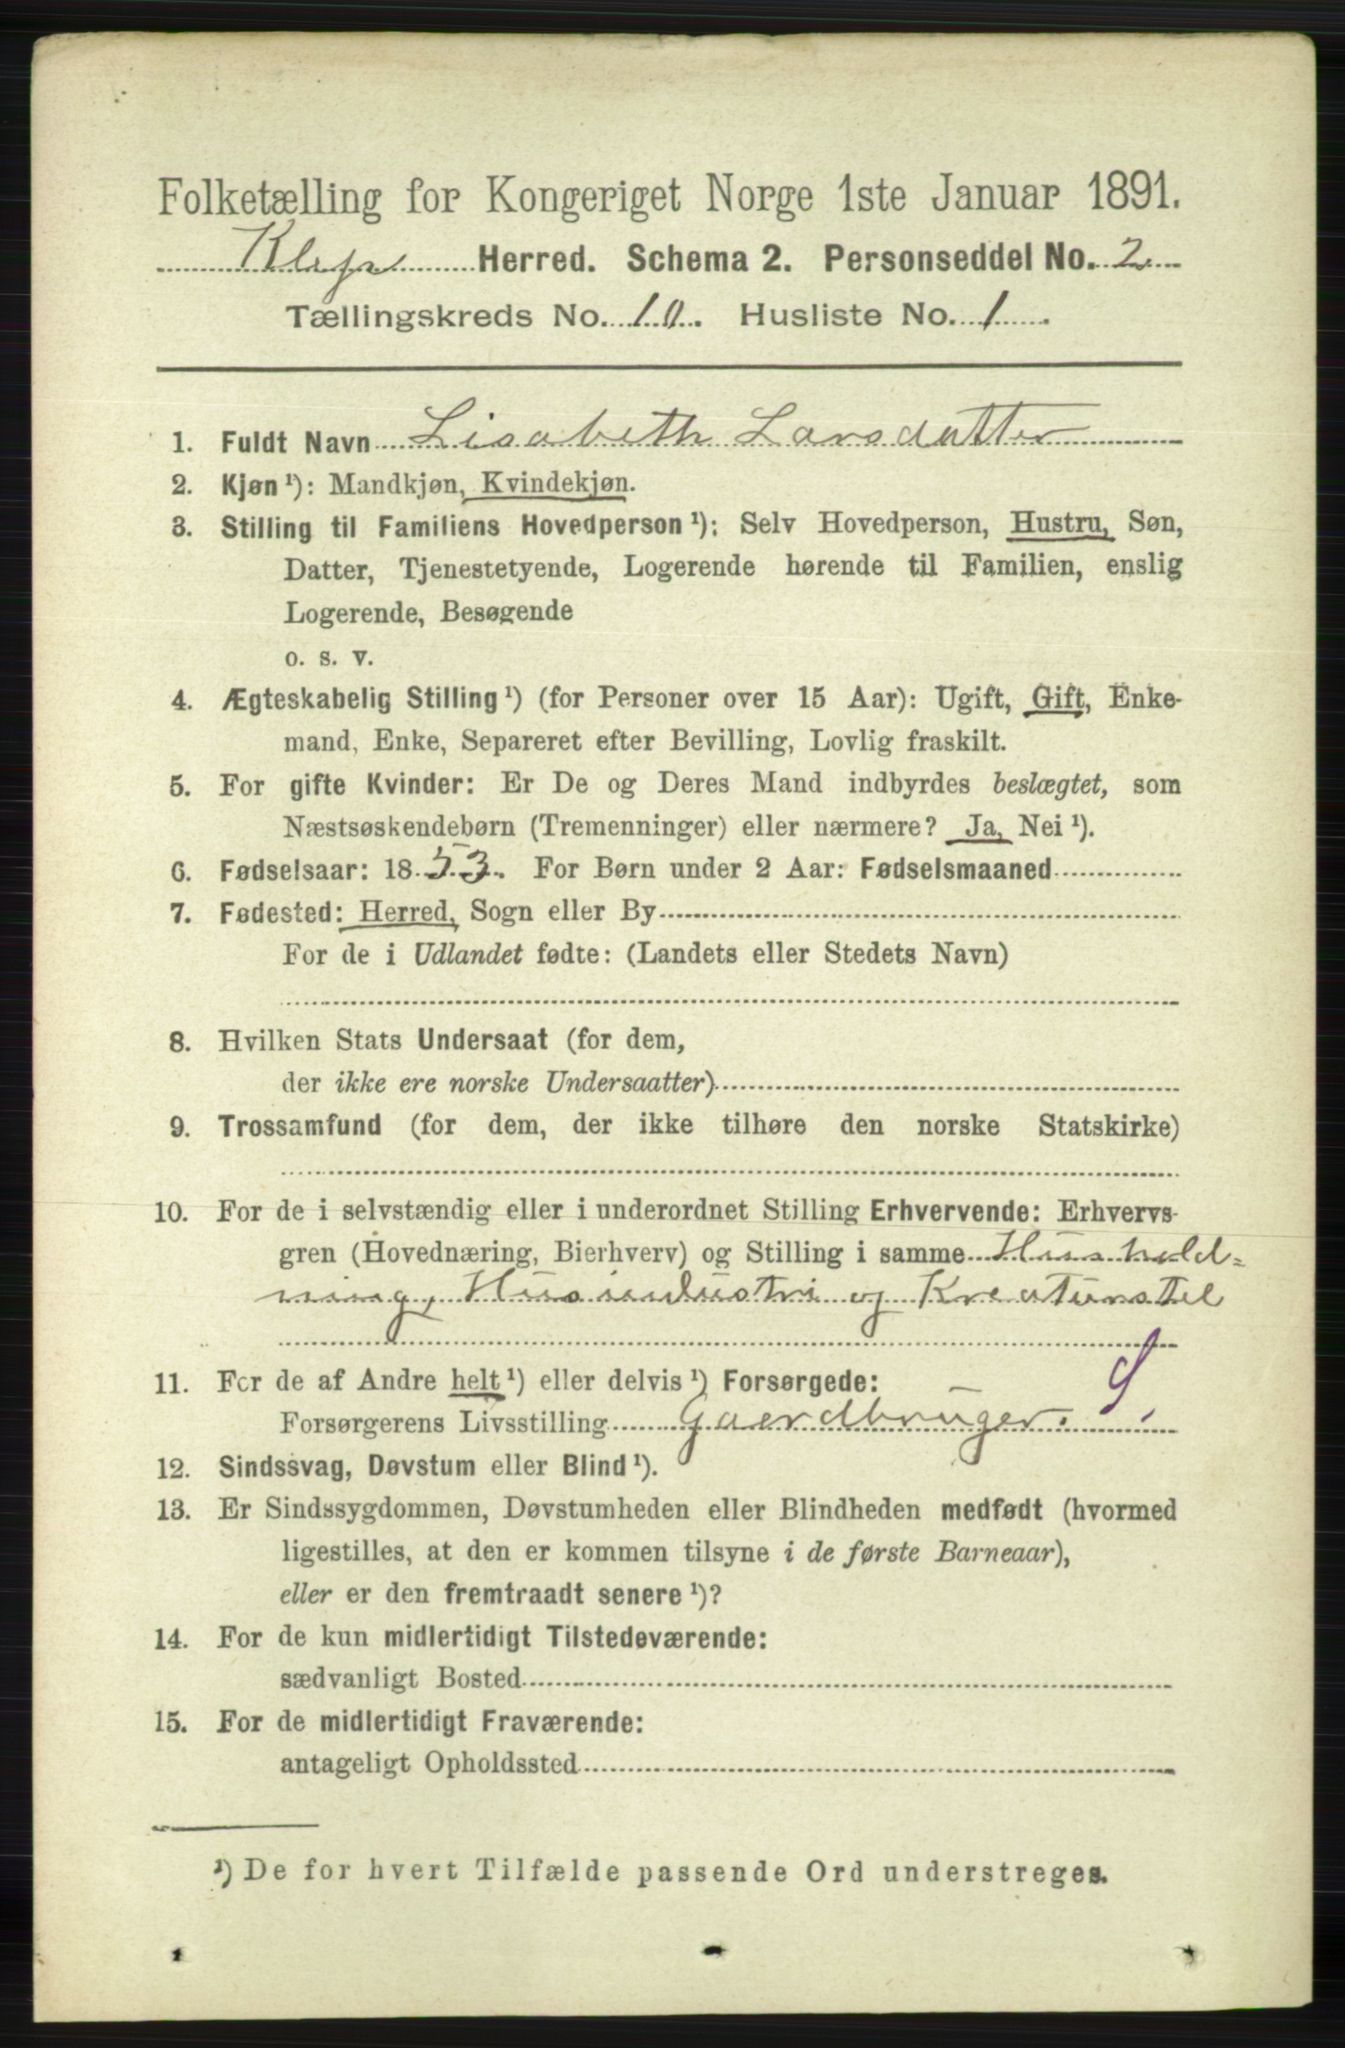 Folketælling for Kongeriget Norge 1ste Januar 1891.
Klepp Herred. Schema 2. Personseddel No. 2
Tællingskreds No. 10. Husliste No. 1
1. Fuldt Navn Lisabeth Larsdatter
2. Kjøn ¹): Mandkjøn, Kvindekjøn.
3. Stilling til Familiens Hovedperson ¹): Selv Hovedperson, Hustru, Søn,
Datter, Tjenestetyende, Logerende hørende til Familien, enslig
Logerende, Besøgende
o. s. v.
4. Ægteskabelig Stilling ¹) (for Personer over 15 Aar): Ugift, Gift, Enke-
mand, Enke, Separeret efter Bevilling, Lovlig fraskilt.
5. For gifte Kvinder: Er De og Deres Mand indbyrdes beslægtet, som
Næstsøskendebørn (Tremenninger) eller nærmere? Ja, Nei ¹).
6. Fødselsaar: 1853. For Børn under 2 Aar: Fødselsmaaned
7. Fødested: Herred, Sogn eller By
For de i Udlandet fødte: (Landets eller Stedets Navn)
8. Hvilken Stats Undersaat (for dem,
der ikke ere norske Undersaatter)
9. Trossamfund (for dem, der ikke tilhøre den norske Statskirke)
10. For de i selvstændig eller i underordnet Stilling Erhvervende: Erhvervs-
gren (Hovednæring, Bierhverv) og Stilling i samme Hushold=
ning, Husindustri og Kreaturstel
11. For de af Andre helt ¹) eller delvis ¹) Forsørgede:
Forsørgerens Livsstilling Gaardbruger. S,
12. Sindssvag, Døvstum eller Blind ¹).
13. Er Sindssygdommen, Døvstumheden eller Blindheden medfødt (hvormed
ligestilles, at den er kommen tilsyne i de første Barneaar),
eller er den fremtraadt senere ¹)?
14. For de kun midlertidigt Tilstedeværende:
sædvanligt Bosted
15. For de midlertidigt Fraværende:
antageligt Opholdssted
¹) De for hvert Tilfælde passende Ord understreges.